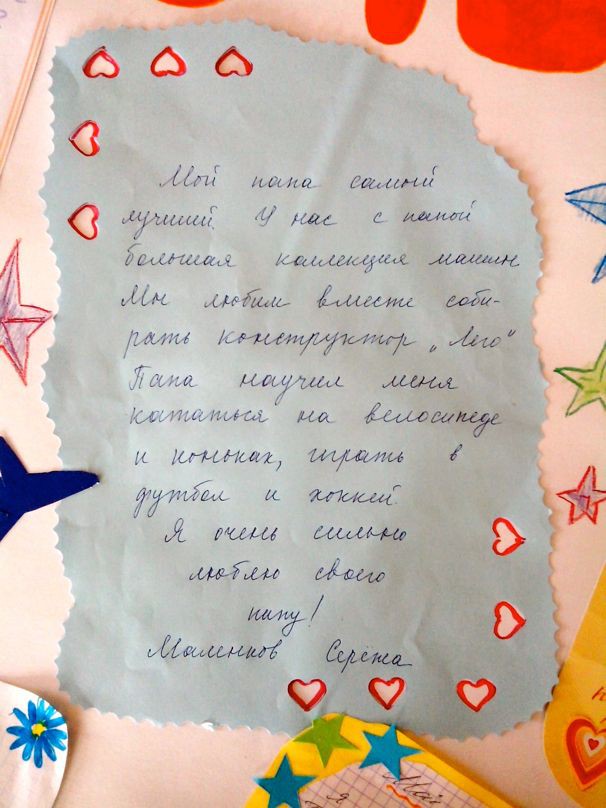 Мой папа самый
лучший. У нас с папой
большая коллекция машин
Мы любим вместе соби-
рать конструктор „Лего“
Папа научил меня
кататься на велосипеде
и коньках, играть в
футбол и хоккей.
Я очень сильно
люблю своего
папу!
Маленков Серёжа
Мой
Я